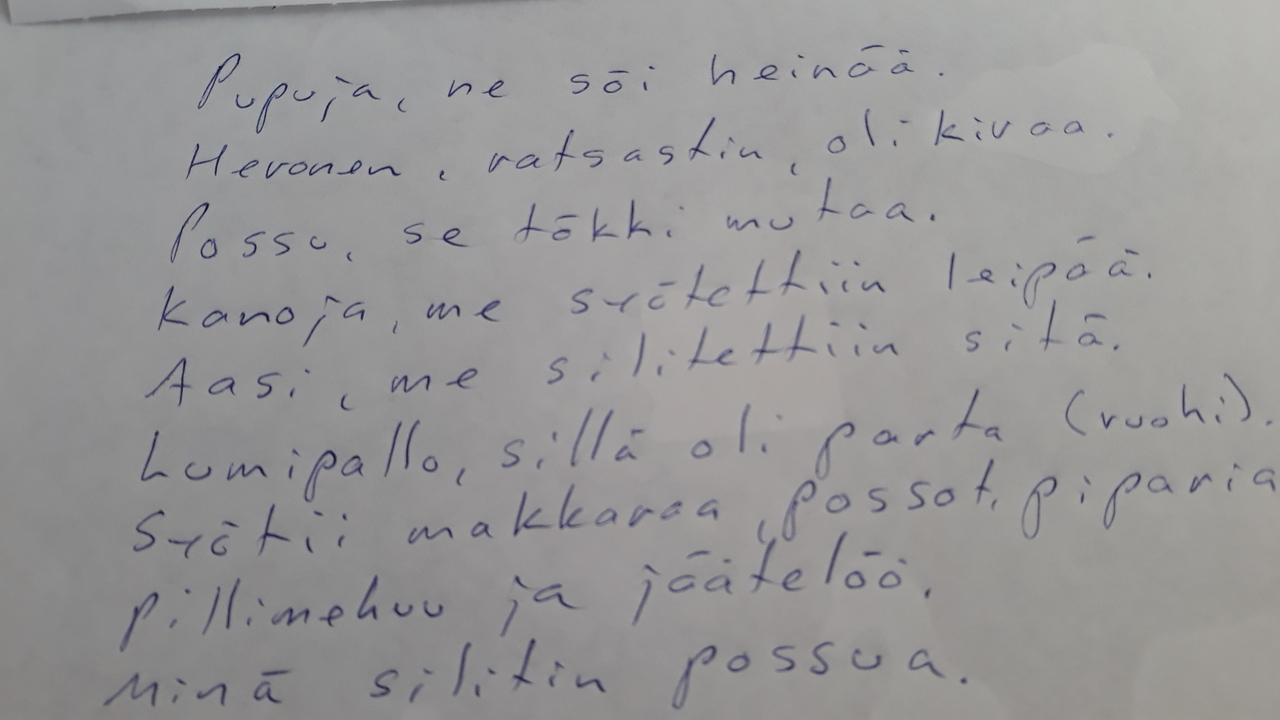 Pupuja, ne söi heinää.
Hevonen, ratsastin, oli kivaa.
Possu, se tökki mutaa.
Kanoja, me syötettiin leipää.
Aasi, me silitettiin sitä.
Lumipallo, sillä oli parta (ruohi).
Syötii makkaraa, possot, piparia
pillimehuu ja jäätelöö.
Minä silitin possua.